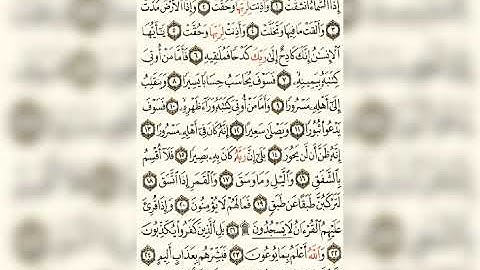 إِذَا ٱلسَّمَآءُ ٱنشَقَّتْ ١ وَأَذِنَتْ لِرَبِّهَا وَحُقَّتْ ٢ وَإِذَا ٱلْأَرْضُ مُدَّتْ
٣ وَأَلْقَتْ مَا فِيهَا وَتَخَلَّتْ ٤ وَأَذِنَتْ لِرَبِّهَا وَحُقَّتْ ٥ يَـٰٓأَيُّهَا
ٱلْإِنسَـٰنُ إِنَّكَ كَادِحٌ إِلَىٰ رَبِّكَ كَدْحًا فَمُلَـٰقِيهِ ٦ فَأَمَّا مَنْ أُوتِىَ
كِتَـٰبَهُۥ بِيَمِينِهِۦ ٧ فَسَوْفَ يُحَاسَبُ حِسَابًا يَسِيرًا ٨ وَيَنقَلِبُ
إِلَىٰٓ أَهْلِهِۦ مَسْرُورًا ٩ وَأَمَّا مَنْ أُوتِىَ كِتَـٰبَهُۥ وَرَآءَ ظَهْرِهِۦ ١٠ فَسَوْفَ
يَدْعُوا۟ ثُبُورًا ١١ وَيَصْلَىٰ سَعِيرًا ١٢ إِنَّهُۥ كَانَ فِىٓ أَهْلِهِۦ مَسْرُورًا ١٣
إِنَّهُۥ ظَنَّ أَن لَّن يَحُورَ ١٤ بَلَىٰٓ إِنَّ رَبَّهُۥ كَانَ بِهِۦ بَصِيرًا ١٥ فَلَآ أُقْسِمُ
بِٱلشَّفَقِ ١٦ وَٱلَّيْلِ وَمَا وَسَقَ ١٧ وَٱلْقَمَرِ إِذَا ٱتَّسَقَ ١٨
لَتَرْكَبُنَّ طَبَقًا عَن طَبَقٍ ١٩ فَمَا لَهُمْ لَا يُؤْمِنُونَ ٢٠ وَإِذَا قُرِئَ
عَلَيْهِمُ ٱلْقُرْءَانُ لَا يَسْجُدُونَ ۩ ٢١ بَلِ ٱلَّذِينَ كَفَرُوا۟ يُكَذِّبُونَ
٢٢ وَٱللَّهُ أَعْلَمُ بِمَا يُوعُونَ ٢٣ فَبَشِّرْهُم بِعَذَابٍ أَلِيمٍ ٢٤